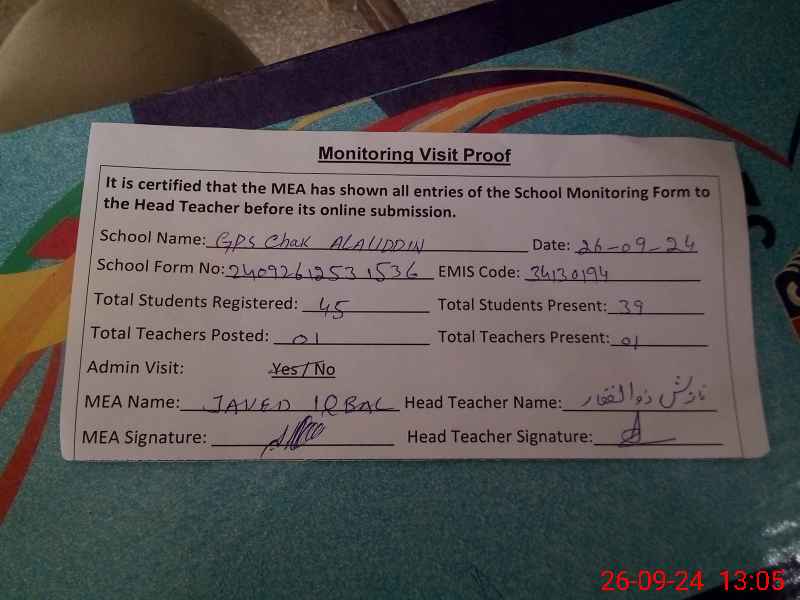 Monitoring Visit Proof
It is certified that the MEA has shown all entries of the School Monitoring Form to
the Head Teacher before its online submission.
School Name: GPS Chak ALAUDDIN Date: 26-09-24
School Form No: 2409261253 1536 EMIS Code: 34130194
Total Students Registered: 45 Total Students Present: 39
Total Teachers Posted: 01 Total Teachers Present: 01
Admin Visit: Yes/No
MEA Name: JAVED IQBAL Head Teacher Name: نازش ذوالفقار
MEA Signature: Head Teacher Signature:
26-09-24 13:05